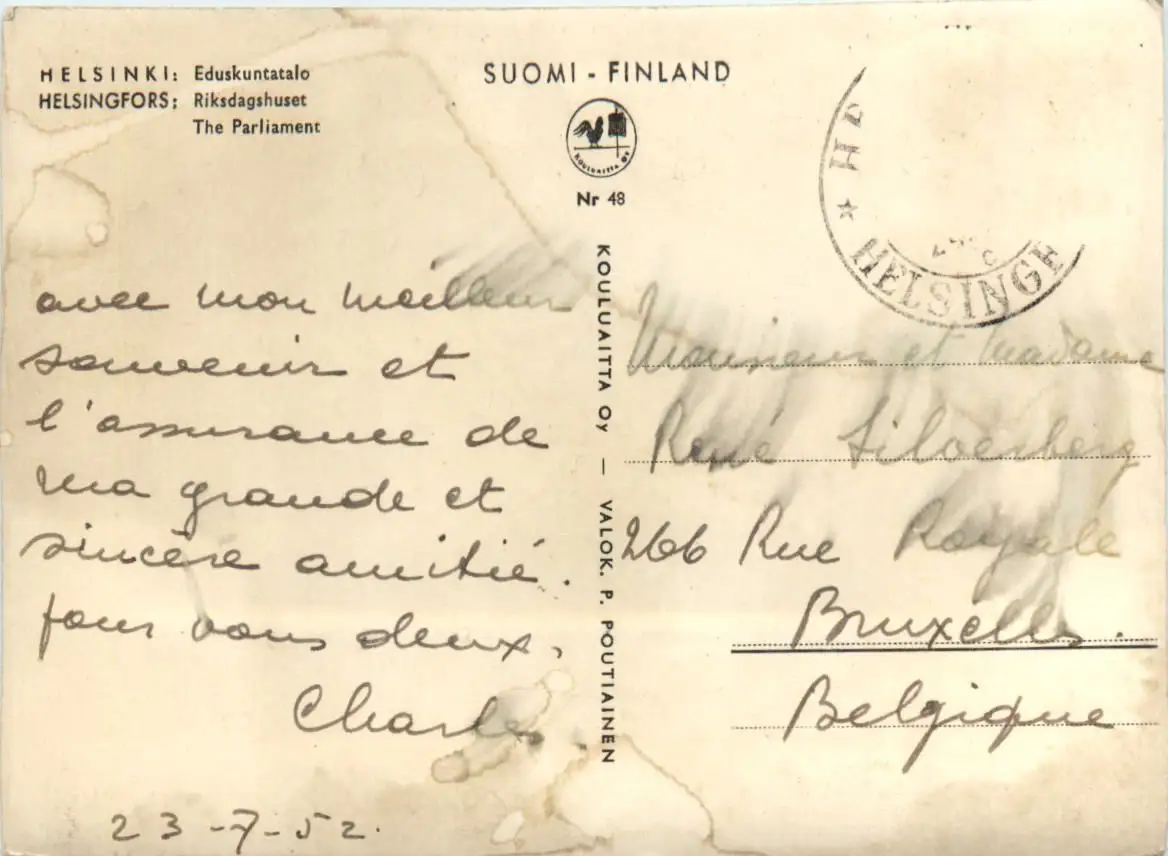 HELSINKI: Eduskuntatalo
HELSINGFORS: Riksdagshuset
The Parliament
SUOMI - FINLAND
KOULUAITTA OY
Nr 48
KOULUAITTA OY — VALOK. P. POUTIAINEN
HELSINGF
avec mon meilleur
souvenir et
l'assurance de
ma grande et
sincère amitié.
pour vous deux.
Charles
23-7-52.
Monsieur et Madame
René Silverberg
266 Rue Royale
Bruxelles.
Belgique